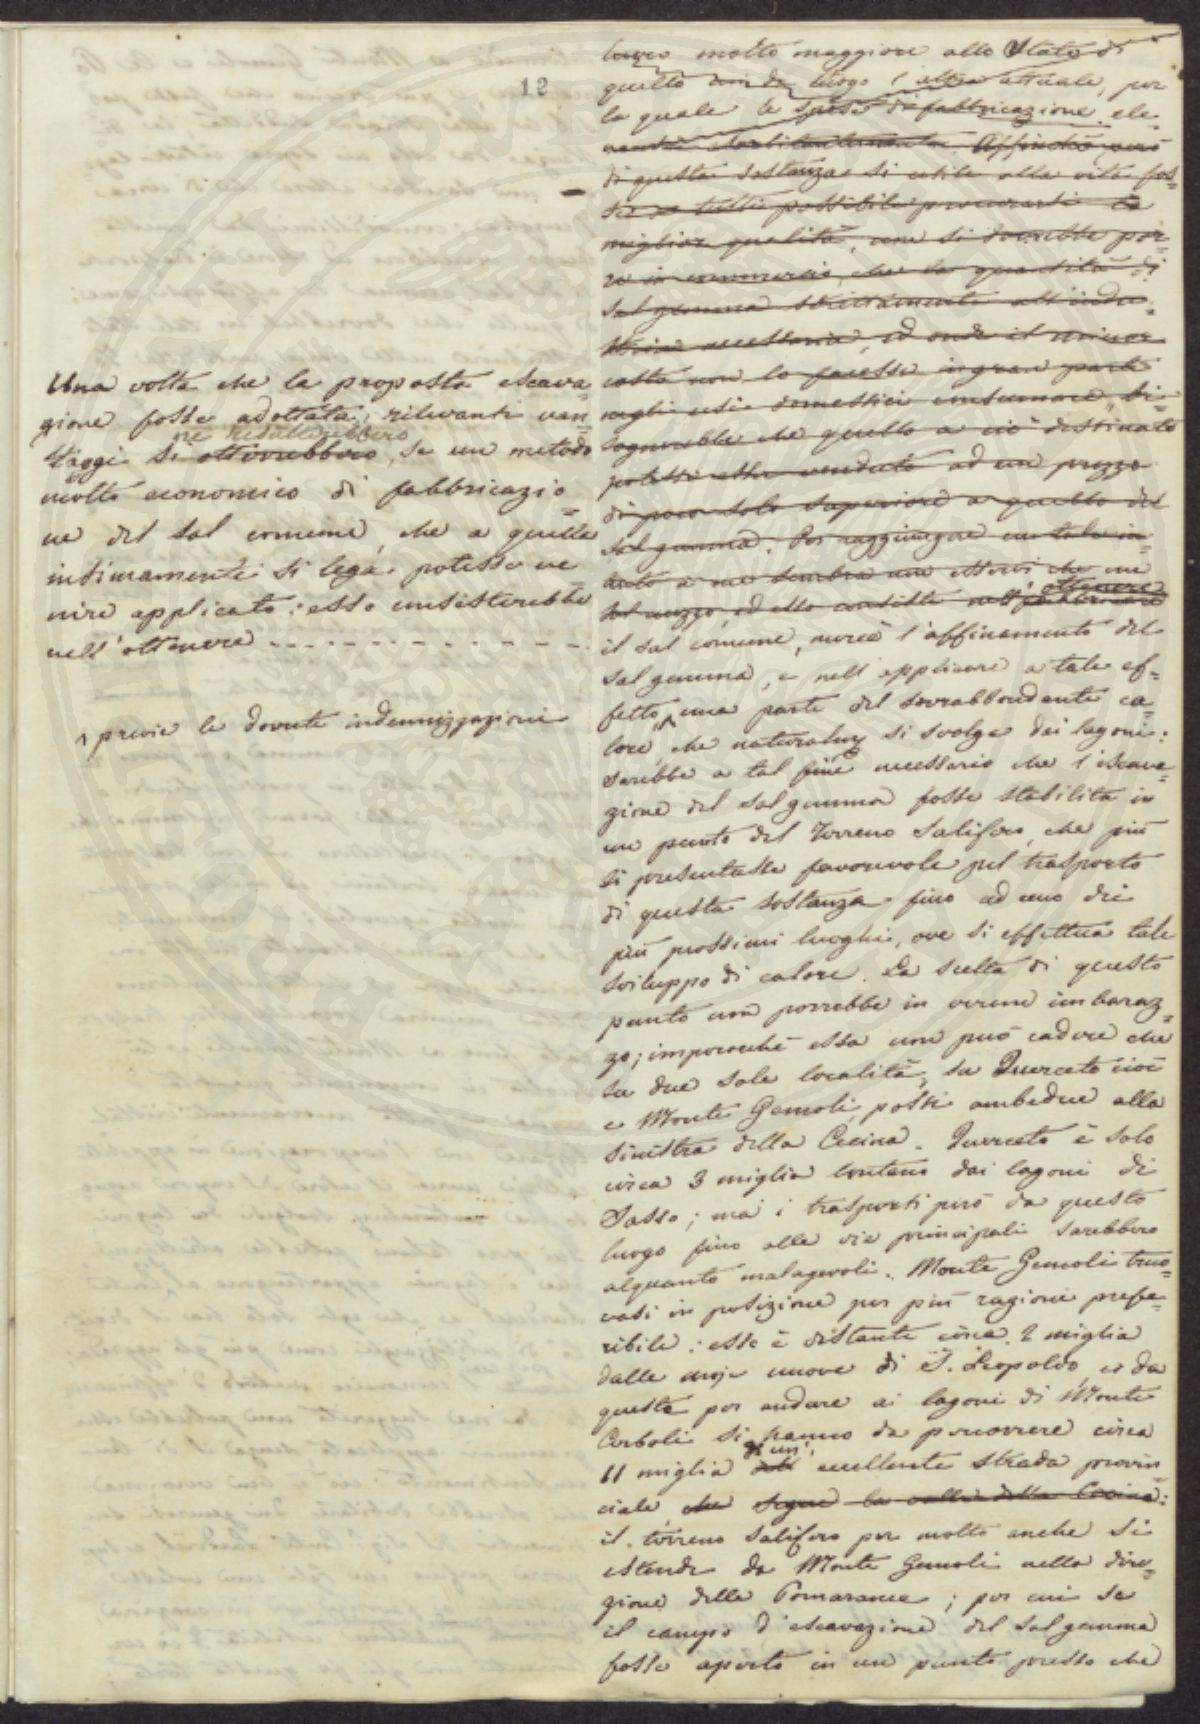 12
Una volta che la proposta escava=
zione fosse adottata, rilevanti van=
ne risulterebbero
taggi si otterrebbero, se un metodo
molto economico di fabbricazio=
ne del sal comune, che a quella
intimamente si lega, potesse ve
nire applicato: esso consisterebbe
nell'ottenere - - - - - - - - -
previe le dovute indennizzazioni
molto maggiore allo Stato di
quello luogo l'altra attuale, per
la quale le spese di fabbricazione ele=
Affinchè però
di questa sostanza sì utile alla vita fos=
se a tutti possibile procurarsi la
miglior qualità, non si dovrebbe por=
re in commercio, che la quantità di
sal gemma strettamente all'indu=
stria necessaria, ed onde il minor
costo non lo facesse in gran parte
negli usi domestici consumare, bi=
sognerebbe che quello a ciò destinato
potesse esser venduto ad un prezzo
di poco solo superiore a quello del
sal gemma. Per raggiungere un tale in=
tento a me sembra non esservi che un
ottenere
sol mezzo, ed esso consiste nell'fabbricare
il sal comune, mercè l'affinamento del
sal gemma, e nell'applicare a tale ef=
fetto una parte del sovrabbondante ca=
lore, che naturalmᵉ si svolge dai lagoni:
sarebbe a tal fine necessario che l'escava=
zione del sal gemma fosse stabilita in
un punto del terreno salifero, che più
si presentasse favorevole pel trasporto
di questa sostanza fino ad uno dei
più prossimi luoghi, ove si effettua tale
sviluppo di calore. La scelta di questo
punto non porrebbe in verun imbaraz=
zo; imperocchè essa non può cadere che
su due sole località, su Querceto cioè
e Monte Gemoli, posti ambedue alla
sinistra della Cecina. Querceto è solo
circa 3 miglia lontano dai lagoni di
Sasso; ma i trasporti però da questo
luogo fino alle vie principali sarebbero
alquanto malagevoli. Monte Gemoli tro=
vasi in posizione per più ragioni prefe=
ribile: esso è distante circa 2 miglia
dalle moje nuove di S. Leopoldo, e da
queste per andare ai lagoni di Monte
Cerboli si hanno da percorrere circa
di un'
11 miglia dell' eccellente strada provin=
ciale che segue la valle della Cecina:
il terreno salifero per molto anche si
estende da Monte Gemoli nella dire=
zione delle Pomarance; per cui se
il campo d'escavazione del sal gemma
fosse aperto in un punto presso che